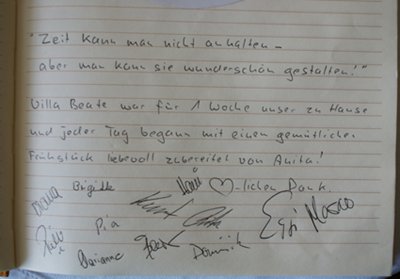 "Zeit kann man nicht anhalten –
aber man kann sie wunderschön gestalten!"
Villa Beate war für 1 Woche unser zu Hause
und jeder Tag begann mit einen gemütlichen
Frühstück liebevoll zubereitet von Anita!
♡-lichen Dank.
Brigitte
Pia
Marianne
Dominik